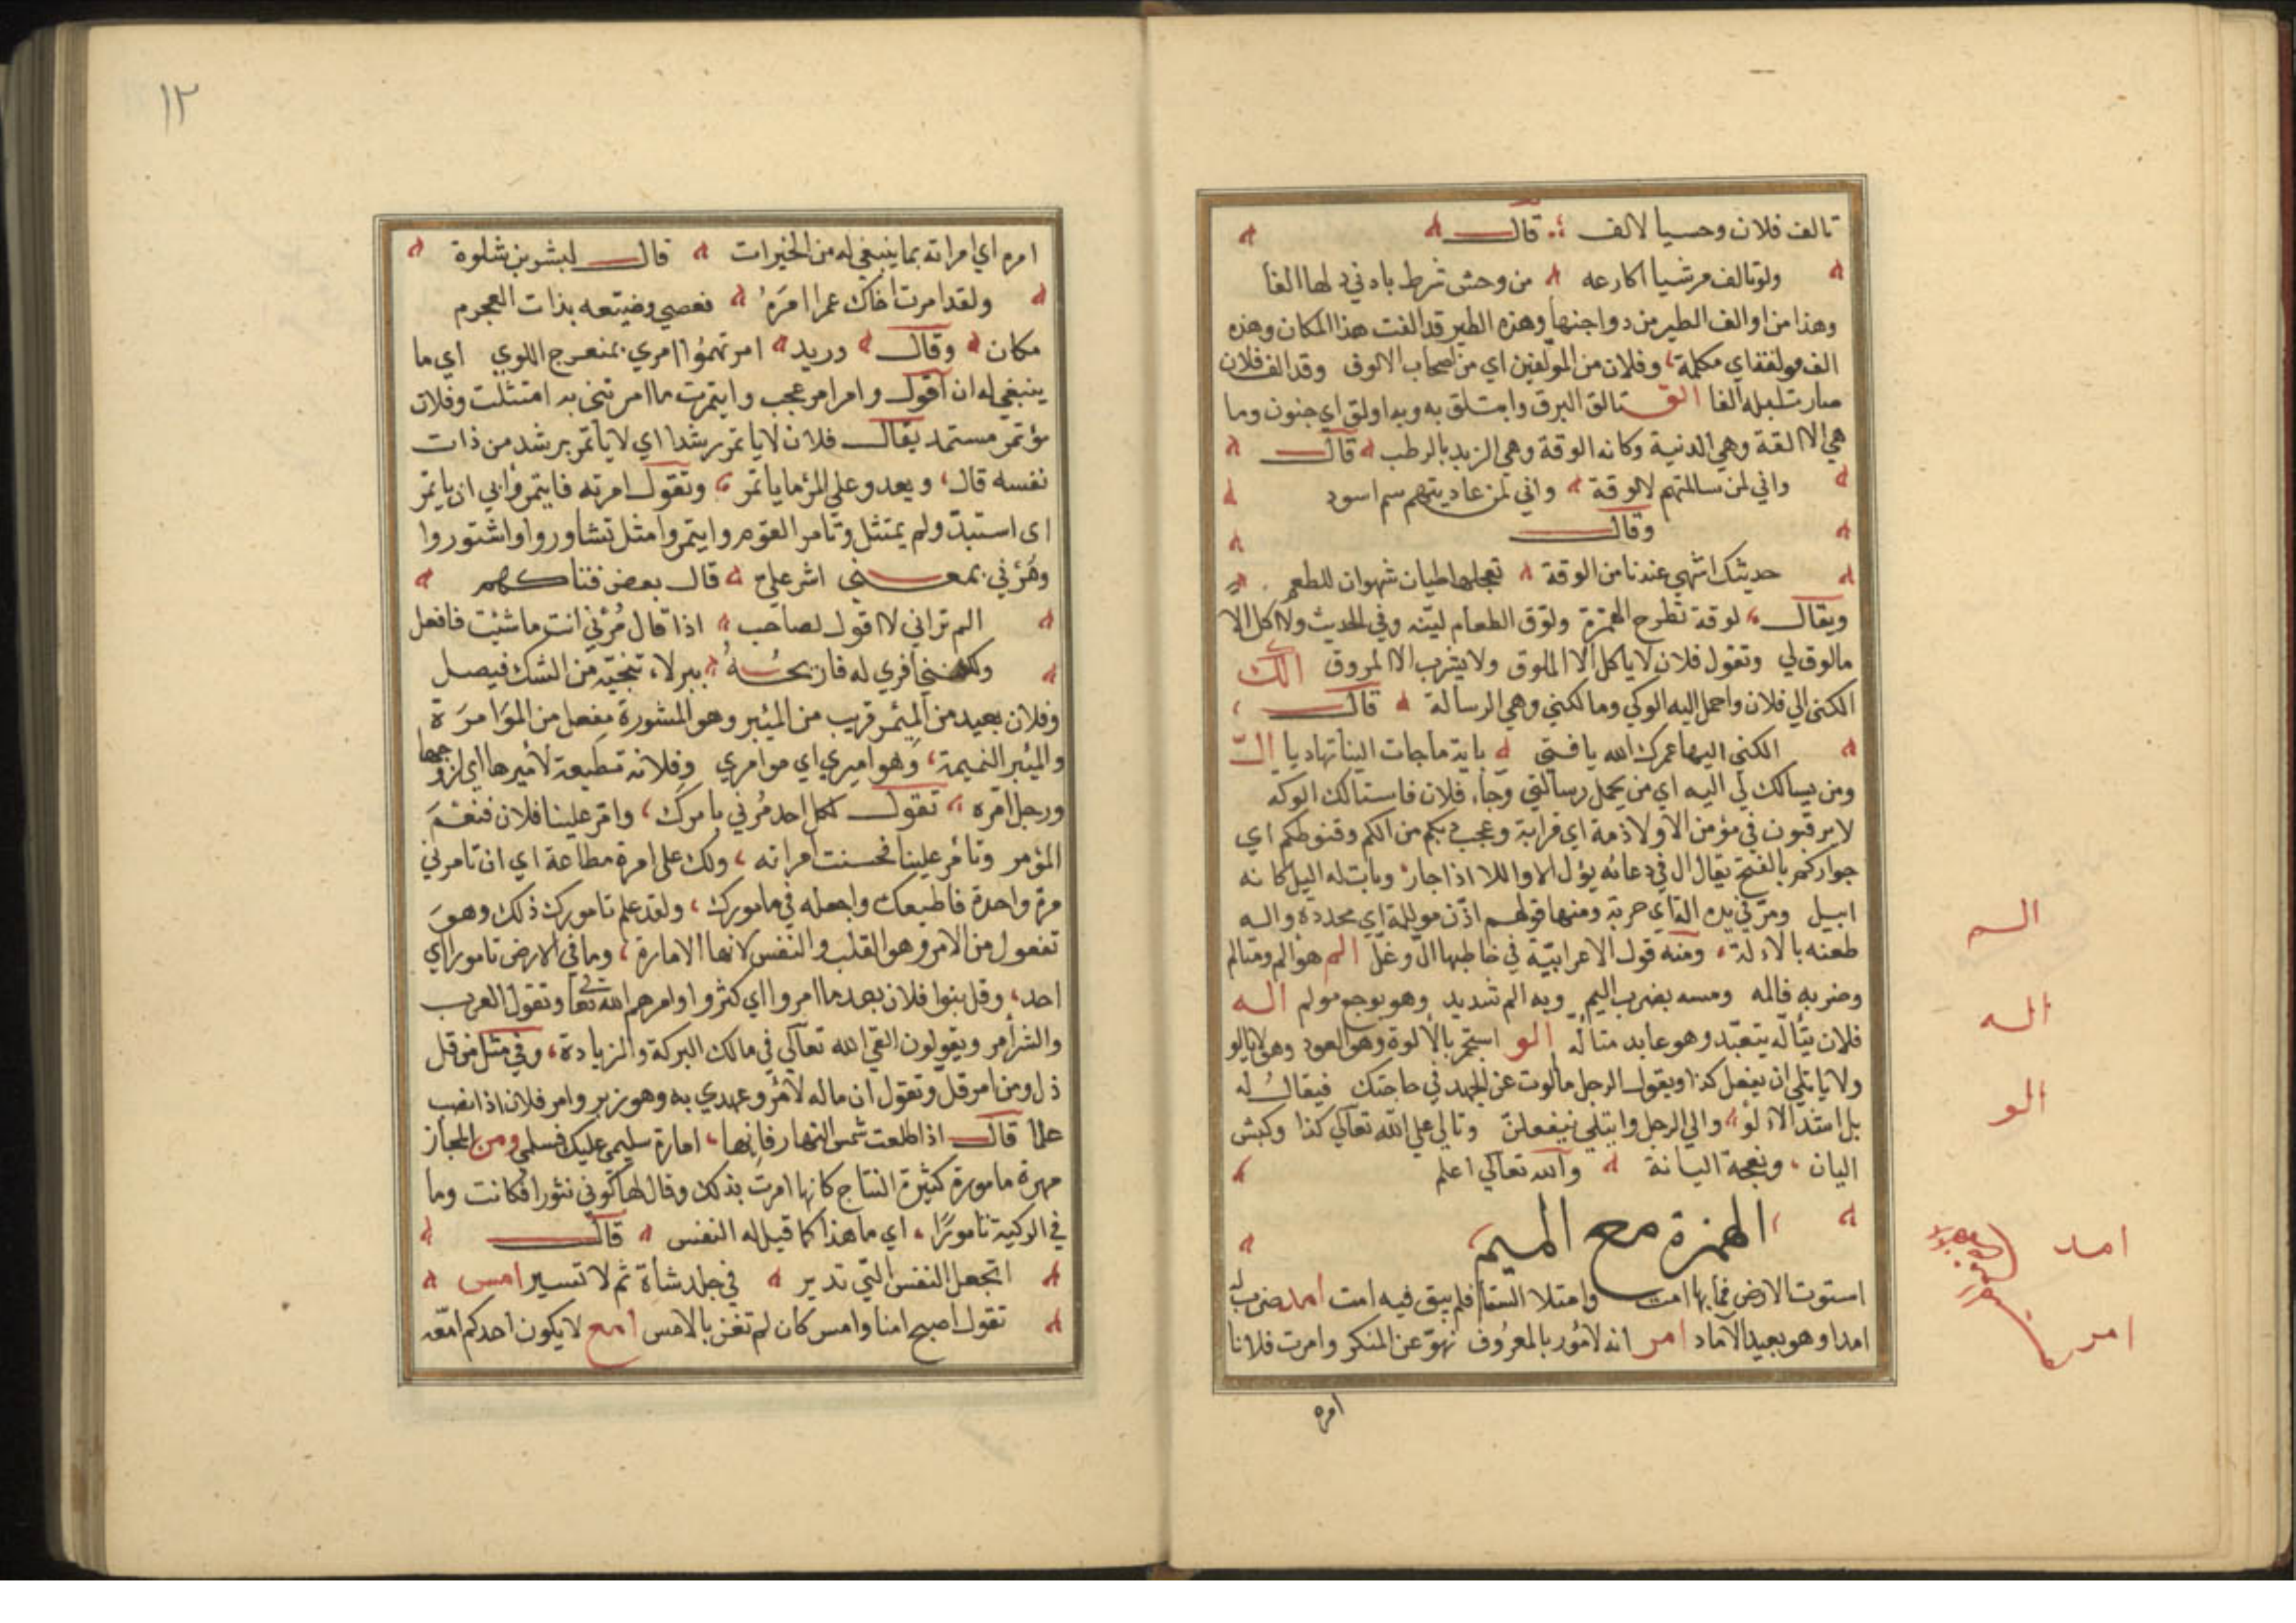 تالف فلان وحسيا لالف ؛ قال
ولو تالف مرشيا اكارعه من وحش شرط باد في دلها الفا
وهذا من اوالف الطير من دواجنها وهذه الطير قد الفت هذا المكان وهذه
الف مولفة اي مكلمة وفلان من المولفين اي من اصحاب الالوف وقد الف فلان
صارت لبله الفا الق تالق البرق وايتلق به وبه اولق اي جنون وما
هي الا القة وهي الدنية وكانه الوقة وهي الزبد بالرطب قال
واني لمن سالمتهم لالوقة واني لمن عاديتهم سم اسود
وقال
حديثك اشهى عندنا من الوقة تعجلها طيان شهوان للطعم
ويقال لوقة تطرح الهمزة ولوق الطعام لينه وفي الحديث ولا اكل الا
مالوق لي وتقول فلان لا ياكل الا الملوق ولا يشرب الا المروق الك
الكني الي فلان واحمل اليه الوكي ومالكني وهي الرسالة قال
الكني اليها عمرك الله يا فتى باية ماجات الينا تهاديا الّ
ومن يسالك لي اليه اي من يحمل رسالتي وجاء فلان فاستالك الوكه
لا يرقبون في مؤمن الا ولا ذمة اي قرابة وعجب بكم من الكم وقنوطكم اي
جواركم بالفتح يقال ال في دعائه يؤل الا واللا اذا جار وبات له اليل كانه
ابيل ومر في يده الة اي حربة ومنها قولهم اذن موللة اي محددة واله
طعنه بالالة ومنه قول الاعرابية في خاطبها ال وغل الم هو الم ومتالم
وضربه فالمه ومسه بضرب اليم وبه الم شديد وهو بوجع مولم اله
فلان يتاله يتعبد وهو عابد متاله الو استجمر بالالوة وهو العود وهو لا يالو
ولا ياتلي ان يفعل كذا ويقول الرجل ما الوت عن الجهد في حاجتك فيقال له
بل اشد الالو والي الرجل وايتلى ليفعلن وتالى على الله تعالى كذا وكبش
اليان ونعجة اليانة والله تعالى اعلم
الهمزة مع الميم
استوت الارض فما بها امت وامتلا السقا فلم يبق فيه امت امد ضرب له
امدا وهو بعيد الآماد امر انه لامور بالمعروف نهو عن المنكر وامرت فلانا
امره
الم
اله
الو
امد
امر
١٢
امره اي امراته بما ينبغي له من الخيرات قال لبشر بن شلوة
ولقد امرت اخاك عمرا امره فعصى وضيعه بذات العجرم
مكان وقال دريد امرتهموا امري بمنعرج اللوي اي ما
ينبغي له ان اقول وامر امر عجب وايتمرت ما امرتني به امتثلت وفلان
مؤتمر مستمد يقال فلان لا ياتمر رشدا اي لا ياتمر برشد من ذات
نفسه قال ويعدو على المرء ما ياتمر وتقول امرته فايتمر وابى ان ياتمر
اي استبد ولم يمتثل وتامر القوم وايتمروا مثل تشاوروا واشتوروا
ومُرْني بمعنى اشر علي قال بعض فتاكهم
الم تراني لا اقول لصاحب اذا قال مُرْني انت ما شئت فافعل
ولكنني افري له فاريحه ببزلاء تنجيه من الشك فيصل
وفلان بعيد من المئمر قريب من المئبر وهو المشورة مفعل من المؤامرة
والمئبر النميمة وهو اميري اي موامري وفلانة مطيعة لاميرها اي لزوجها
ورجل امرة تقول لكل احد مُرني بامرك وامر علينا فلان فنعم
المؤمر وتامر علينا فحسنت امراته ولك علي امرة مطاعة اي ان تامرني
مرة واحدة فاطيعك واجعله في مامورك ولقد علم تامورك ذلك وهو
تفعول من الامر وهو القلب والنفس لانها الامارة وما في الارض تامور اي
احد وقل بنوا فلان بعد ما امروا اي كثروا وامرهم الله تعالى وتقول العرب
والشر امر ويقولون القى الله تعالى في مالك البركة والزيادة وفي مثل من قل
ذل ومن امر قل وتقول ان ماله لامر وعهدي به وهو زبر وامر فلان اذا نصب
علما قال اذا طلعت شمس النهار فانها امارة تسليمي عليك فسلمي ومن المجاز
مهرة مامورة كثيرة النتاج كانها امرت بذلك وقال لها كوني نثورا فكانت وما
في الركية تامورا اي ما هذا كما قيل له النفس قال
اتجعل النفس التي تدير في جلد شاة ثم لا تسير امس
تقول اصبح امنا وامس كان لم تغن بالامس امع لا يكون احدكم امعه